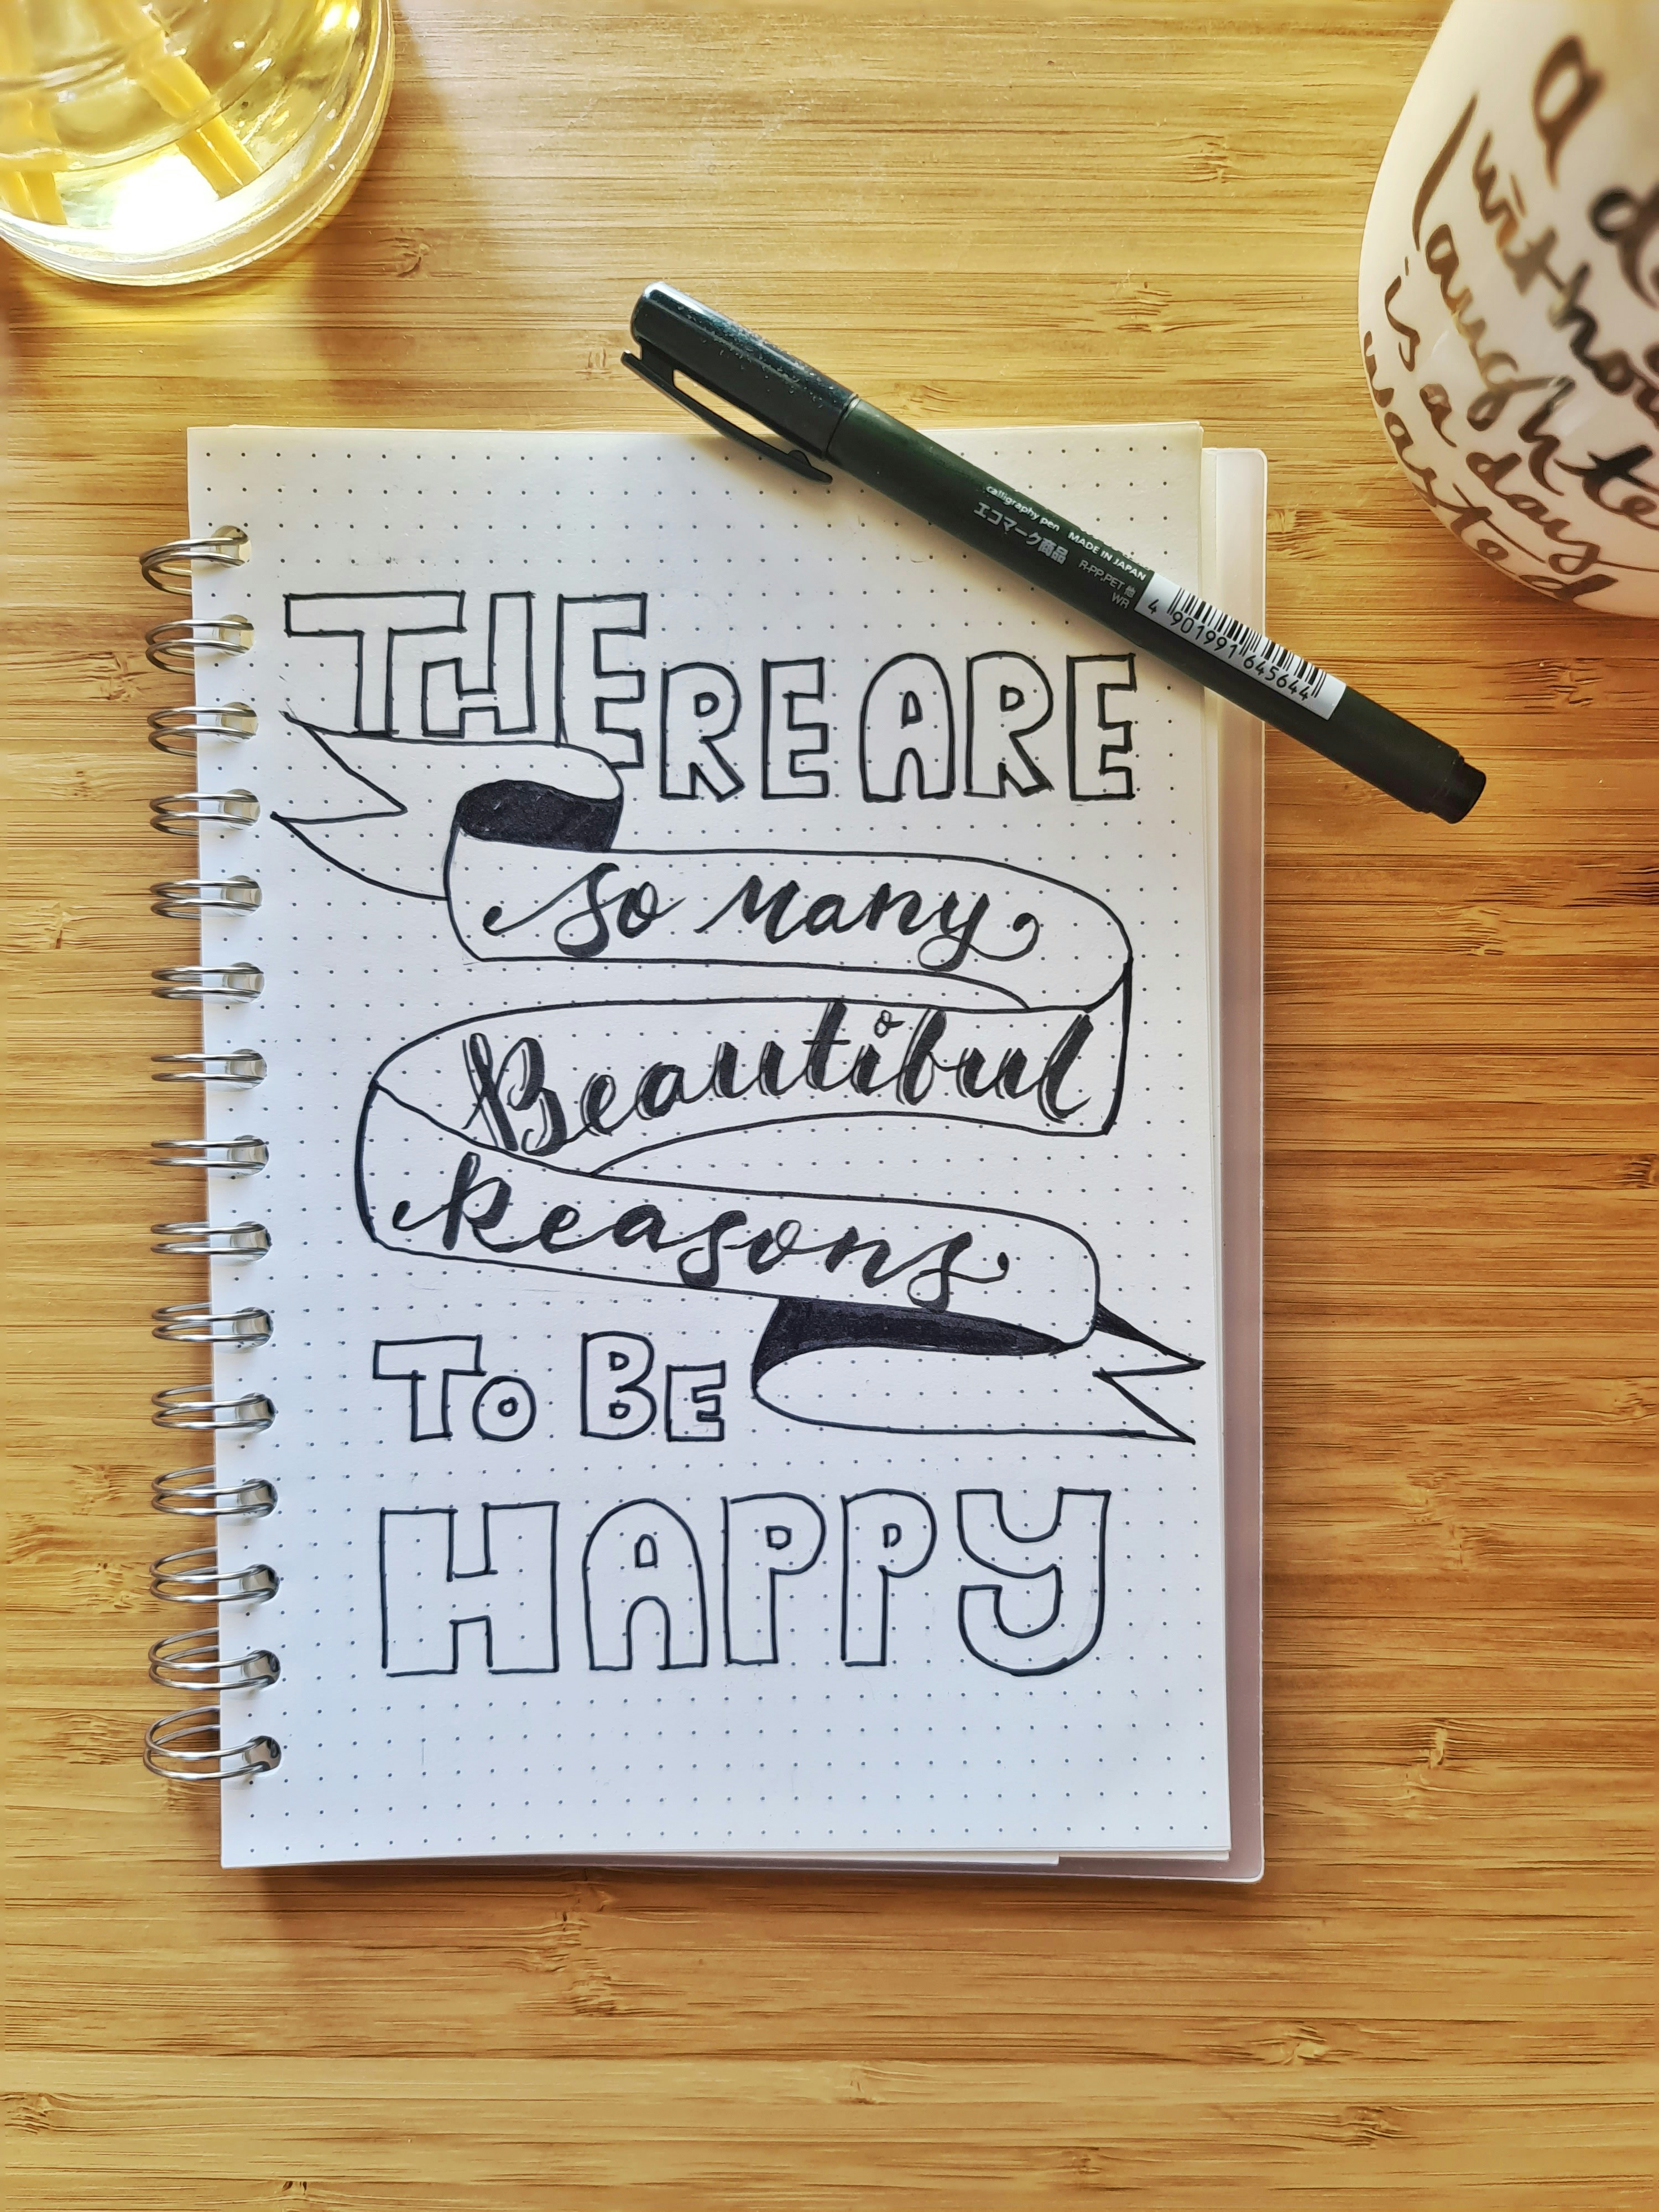 a d
without
laughte
is a day
wasted
calligraphy pen MADE IN JAPAN
エコマーク商品 R-PP,PET,他
WR
4 901991 645644
THERE ARE
so many
Beautiful
Reasons
TO BE
HAPPY